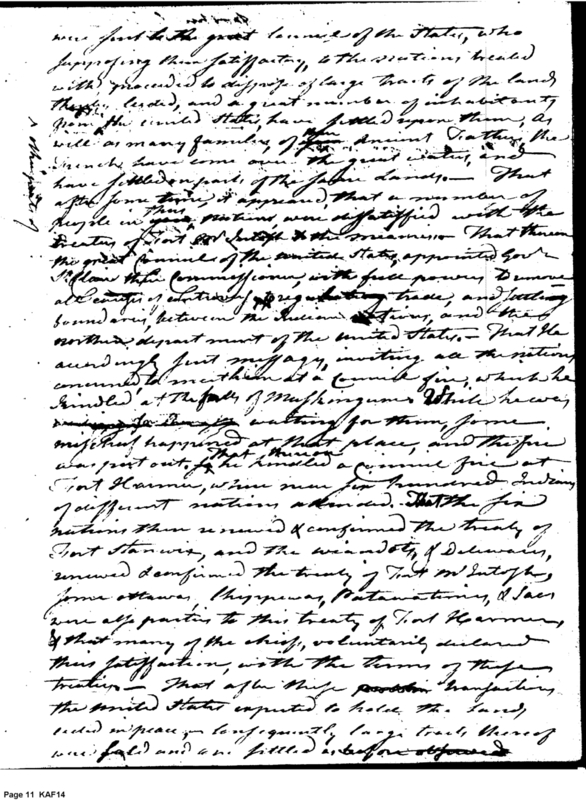 were sent to the great council of the States, who
supposing them satisfactory, to the nations treated
with proceeded to dispose of large tracts of the land
ceded, and a great number of inhabitants
from the United States, have settled upon them, As
well as many families, of Ancient Fathers the
French have come over the great waters, and
have settled on parts of the same Lands.— That
after some time, it appeared that a number of
people in your Nations were dissatisfied with the
treaties of Fort McIntosh & the miamis.— That thereon
the great Council of the united States, appointed Govr
St Clair their Commissioner, with full powers to remove
all causes of controversy regulating trade, and settling
boundaries, between the Indian nations, and the
northern department of the united States.— That He
accordingly sent messages, inviting all the nations
concerned to meet them at a Council fire, which he
kindled at the falls of Muskingum. While he was
waiting for them, some
mischief happened at that place, and the fire
was put out. That thereon
he kindled a council fire at
Fort Harmar, where near six hundred Indians
of different nations attended. That the six
nations then renewed & confirmed the treaty of
Fort Stanwix, and the wiandots, & Delawares,
renewed & confirmed the treaty of Fort McIntosh,
some ottawas Chippewas, Patawatimies, & Sacs
were also parties to this treaty of Fort Harmar,
& that many of the chiefs, voluntarily declared
their satisfaction, with the terms of these
treaties— That after these transactions
the united States expected to hold the Lands
ceded in peace, consequently, large tracts thereof
were sold and are settled as before observed
Page 11 KAF14